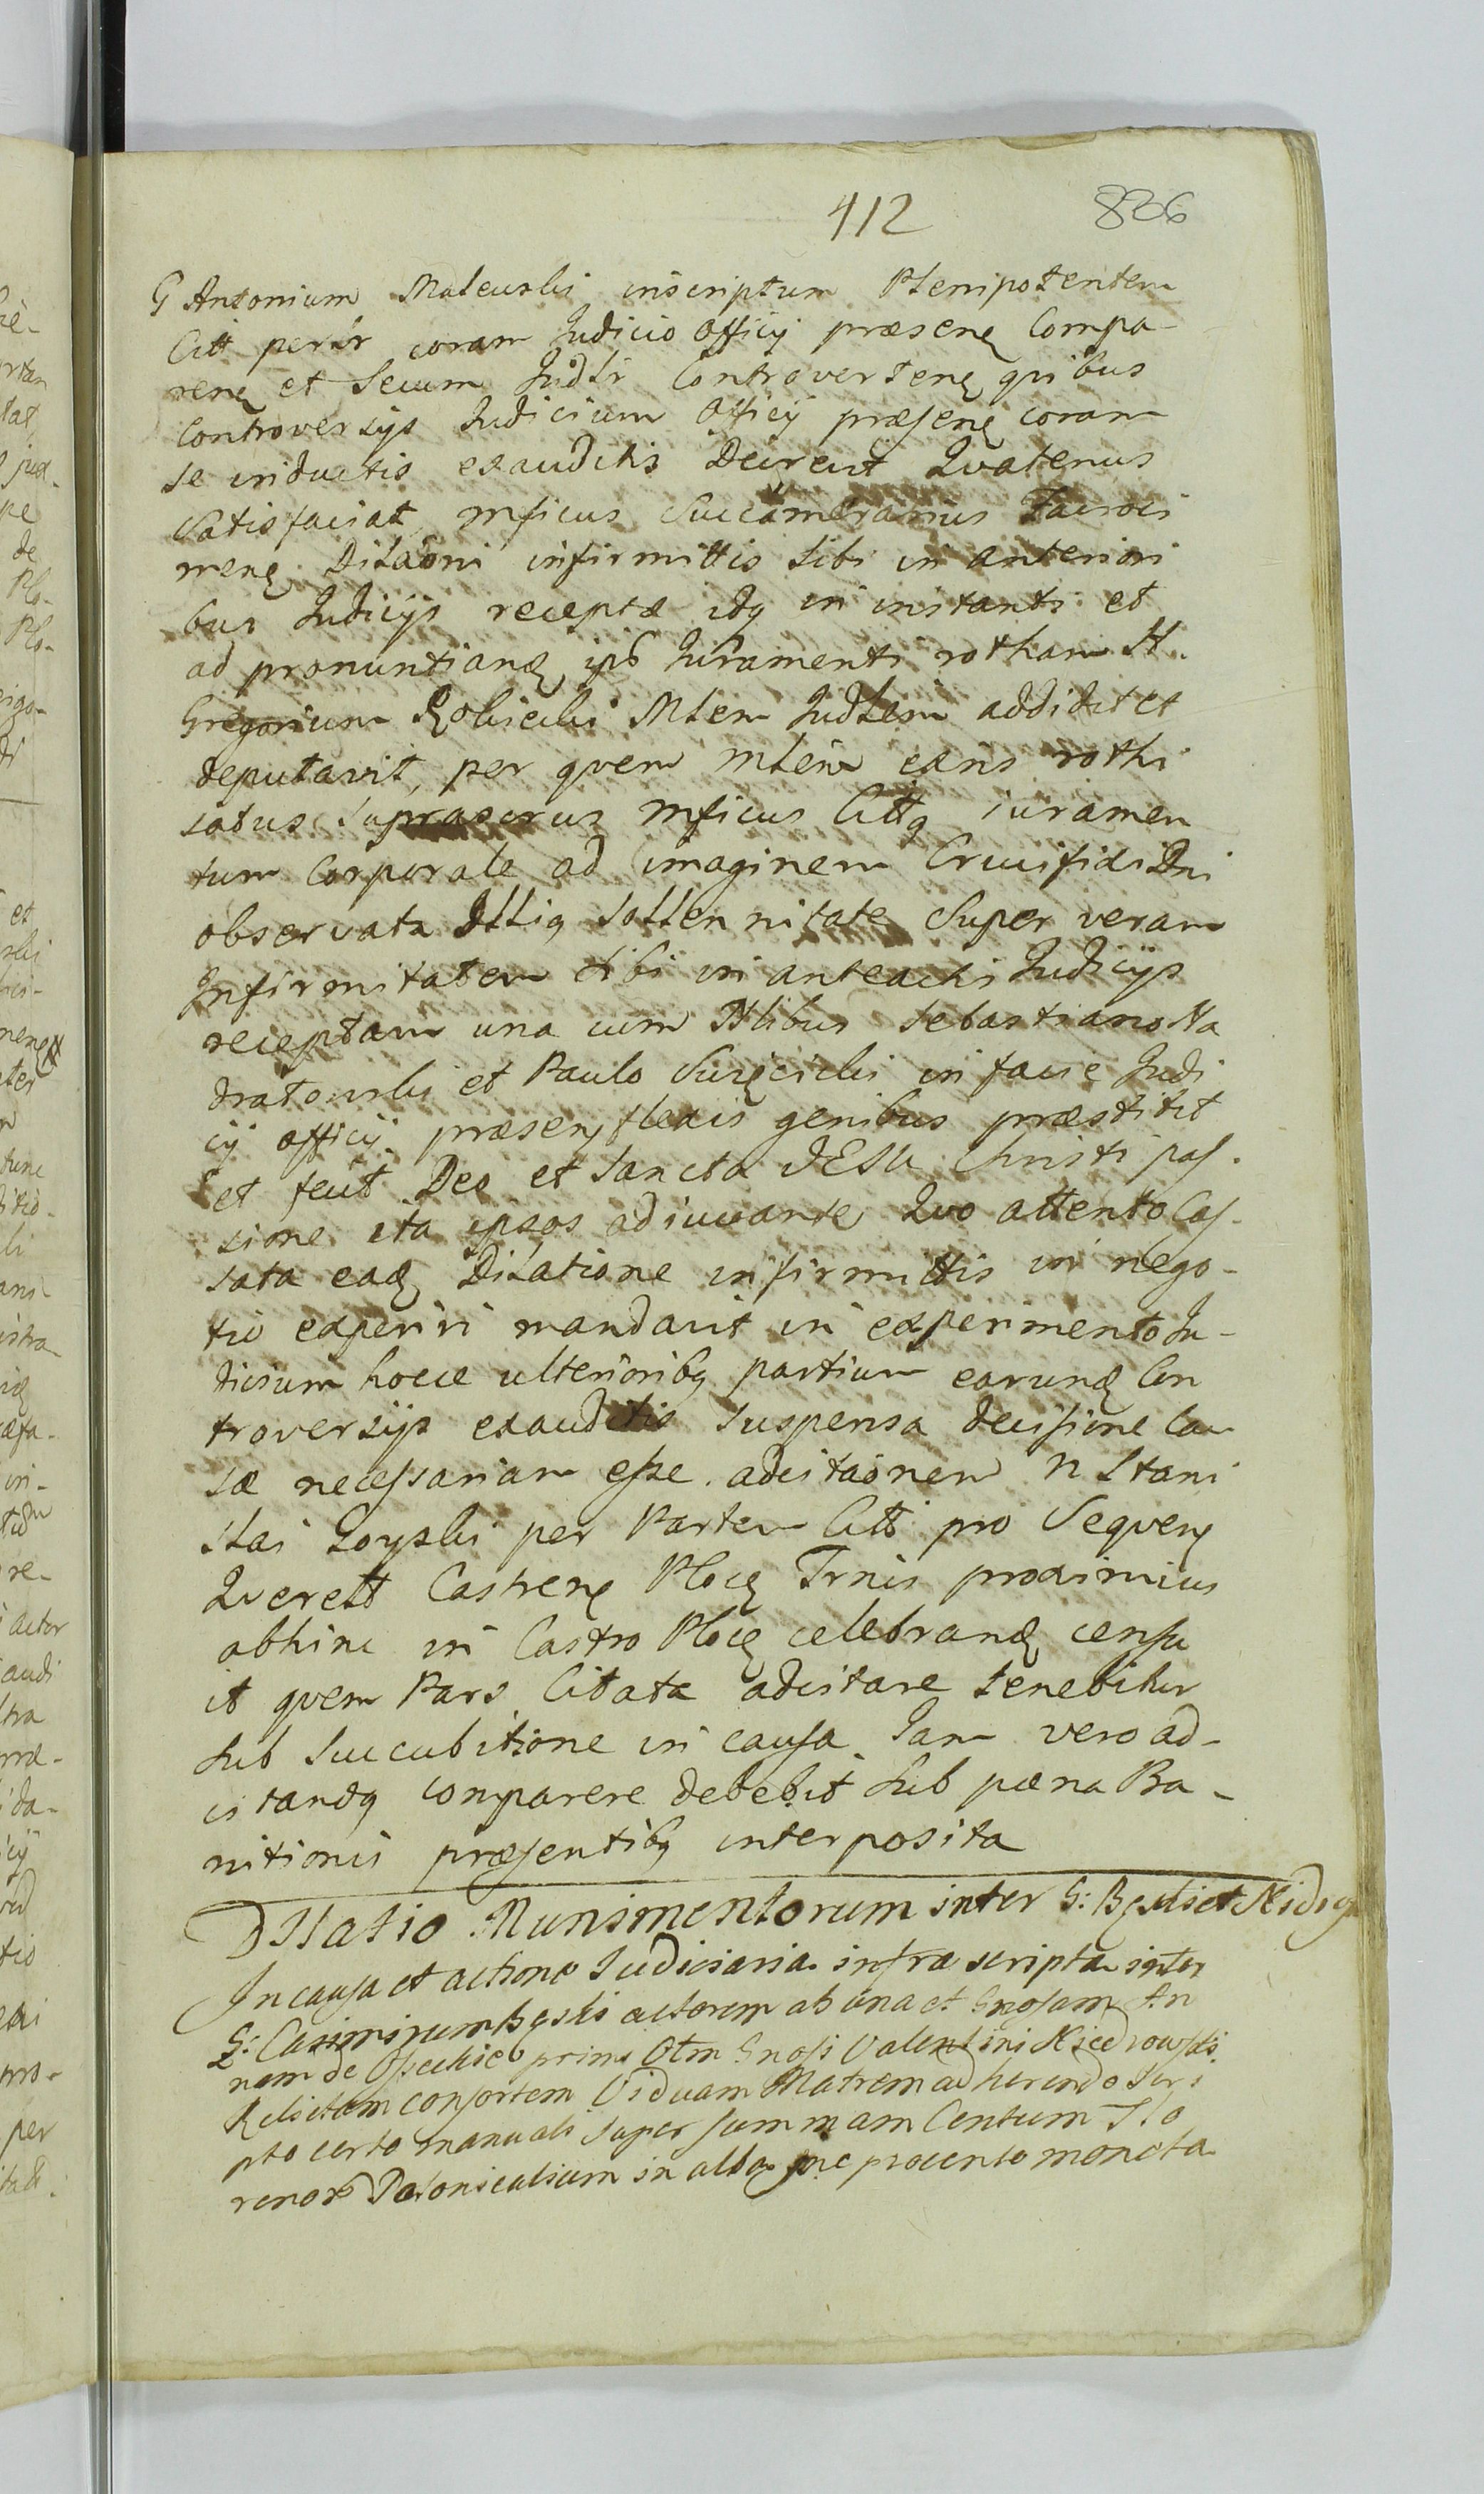 412 826
G Antonium Mateuski inscriptum Plenipotentem
Citt perér coram Judicio Officij præsenȩ Compa-
renȩ et Secum Judlr Controvertenȩ quibus
Controversijs Judicium Officij præsenȩ coram
se inductis exauditis Decrevit Quatenus
Satisfaciat mficus Succamerarius
menȩ Dilaoni infirmittis Sibi in anteriori
bus Judicijs receptæ idq in instanti et
ad pronuntianȩ ips Juramenti rotham N.
Gregorium Mlem Judlem addidit et
deputavit, per quem mlem eȧns rothi
satus Suprascrus mficus Citt9 juramen
tum Corporale ad imaginem Crucifixi Dni
observata sollennitate Super veram
Infirmitatem Sibi in anteactis Judicijs
receptam una cum Nlibus Sebastiano Na
dratowski et Paulo in facie Judi
cij officij præsenȩ flexis genibus præstitit
et fecit Deo et Sancta JESU Christi pas-
sione ita ipsos adiuvante Quo attento Cas-
sata eadȩ Dilatione infirmittis in nego-
tio experiri mandavit in experimento Ju-
dicium hocce ulterioribq partium earundȩ Con
troversijs exauditis suspensa decisione Cau
sæ necessariam esse adcitaönem N Stani
slai per Partem Citt pro Sequenȩ
Querell Castrenȩ Plocȩ Trnis proximius
abhinc in Castro Plocȩ celebrandȩ censu
it quem Pars Citata adcitare tenebitur
sub Succubitione in causa Jam vero ad-
citandq comparere debebit Sub pæna Ba-
nitionis præsentibq interposita
Dilatio Munimentorum inter G:
In causa et actione Judiciaria infra scripta inter
G: Casimirum actorem ab una et Gnosam An
nam de primi Otm Gnosi Valentini Niedrowski
Relictam consortem Viduam Matrem adhærendo Scri
pto certo manuali super summam Centum Flo
renor Polonicalium in alba moneta